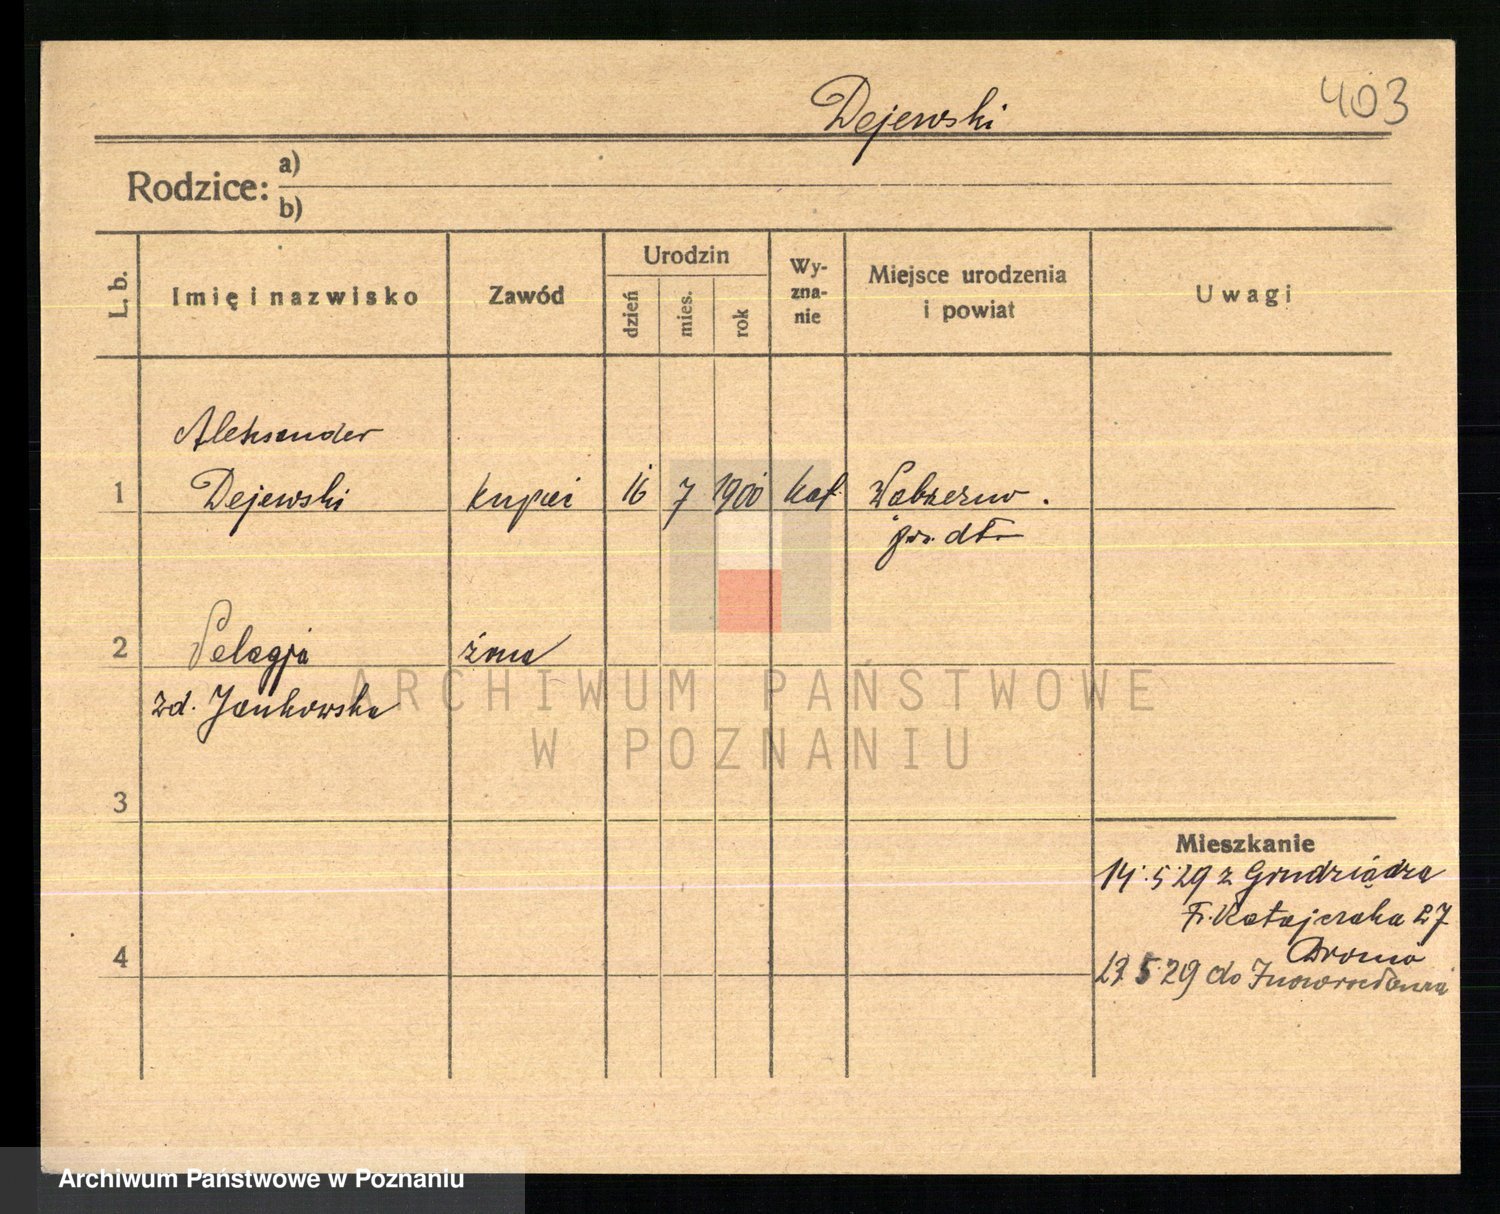 Dejewski
403
Rodzice: a)
b)
L. b.
Imię i nazwisko
Zawód
Urodzin
dzień
mies.
rok
Wy-
zna-
nie
Miejsce urodzenia
i powiat
Uwagi
Aleksander
1 Dejewski kupiec 16 7 1900 kat Wąbrzeźno
2 Pelagja żona
zd. Jankowska
3
4
Mieszkanie
14.5.29 z Grudziądza
Fr. Ratajczaka 27
5.29 do Inowrocławia
ARCHIWUM PAŃSTWOWE
W POZNANIU
Archiwum Państwowe w Poznaniu